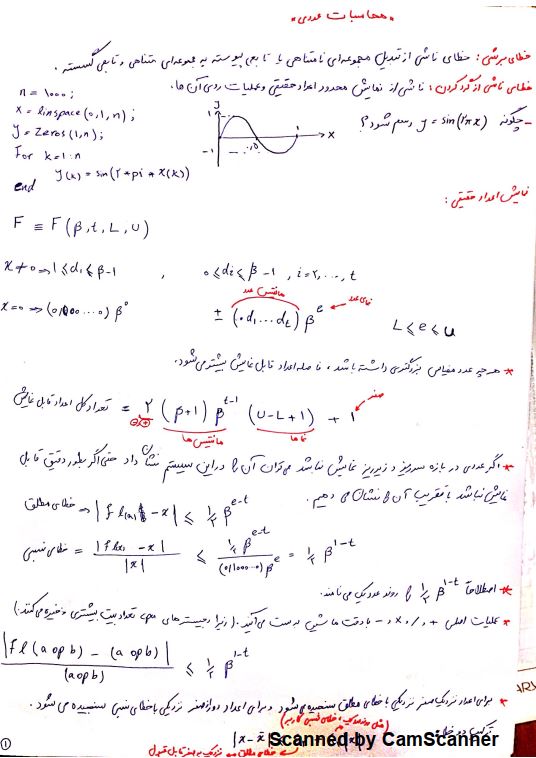 محاسبات عددی
خطای برشی: خطای ناشی از تبدیل مجموعه‌ای نامتناهی یا تابعی پیوسته به مجموعه‌ای متناهی و تابعی گسسته.
خطای ناشی از گرد کردن: ناشی از نمایش محدود اعداد حقیقی و عملیات روی آن ها.
- چگونه y = sin(2πx) رسم شود؟
n = 1000;
x = linspace(0,1,n);
y = zeros(1,n);
For k=1:n
y(k) = sin(2*pi*x(k))
end
y
1
-1
x
نمایش اعداد حقیقی:
F ≡ F(β, t, L, U)
x≠0 ⇒ 1 ≤ d₁ ≤ β-1 , 0 ≤ di ≤ β-1 , i=2,...,t
x=0 ⇒ (0/000...0) β⁰
مانتیس عدد
± (.d₁...dt) β^e
نمای عدد
L ≤ e ≤ U
* هر چه عدد مقیاس بزرگتری داشته باشد، فاصله اعداد قابل نمایش بیشتر می شود.
تعداد کل اعداد قابل نمایش = 2 (β+1) β^(t-1) (U-L+1) + 1
صفر
مانتیس ها
نماها
* اگر عددی در بازه سرریز و زیرریز نمایش نباشد می توان آن را در این سیستم نشان داد حتی اگر بطور دقیق قابل
نمایش نباشد با تقریب آن را نشان می دهیم.
خطای مطلق ⇒ |fl(x) - x| ≤ ½ β^(e-t)
خطای نسبی = |fl(x) - x| / |x| ≤ ½ β^(e-t) / (0/1000...0) β^e = ½ β^(1-t)
* اصطلاحاً ½ β^(1-t) را روند عددیک می نامند.
* عملیات اصلی + و / و × و - با دقت ماشین بدست می آیند. (زیرا رجیسترهای تعداد بیت بیشتری ذخیره می کنند.)
|fl(a op b) - (a op b)| / (a op b) ≤ ½ β^(1-t)
* برای اعداد نزدیک صفر نزدیکی با خطای مطلق سنجیده می شود و برای اعداد دور از صفر نزدیکی با خطای نسبی سنجیده می شود.
|x - x̄|
1
Scanned by CamScanner